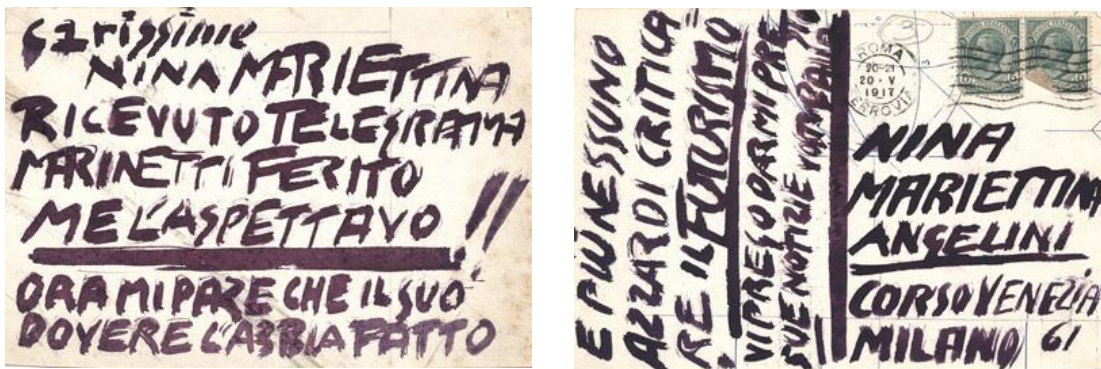 carissime
NINA MARIETTINA
RICEVUTO TELEGRAMMA
MARINETTI FERITO
ME L'ASPETTAVO!!
ORA MI PARE CHE IL SUO
DOVERE L'ABBIA FATTO
E PIÙ NESSUNO
AZZARDI CRITICA
RE IL FUTURISMO
VI PREGO DARMI PRE
SUE NOTIZIE VOSTRO
ROMA
20-21
20·V
1917
FERROVIA
NINA
MARIETTINA
ANGELINI
CORSO VENEZIA
MILANO 61